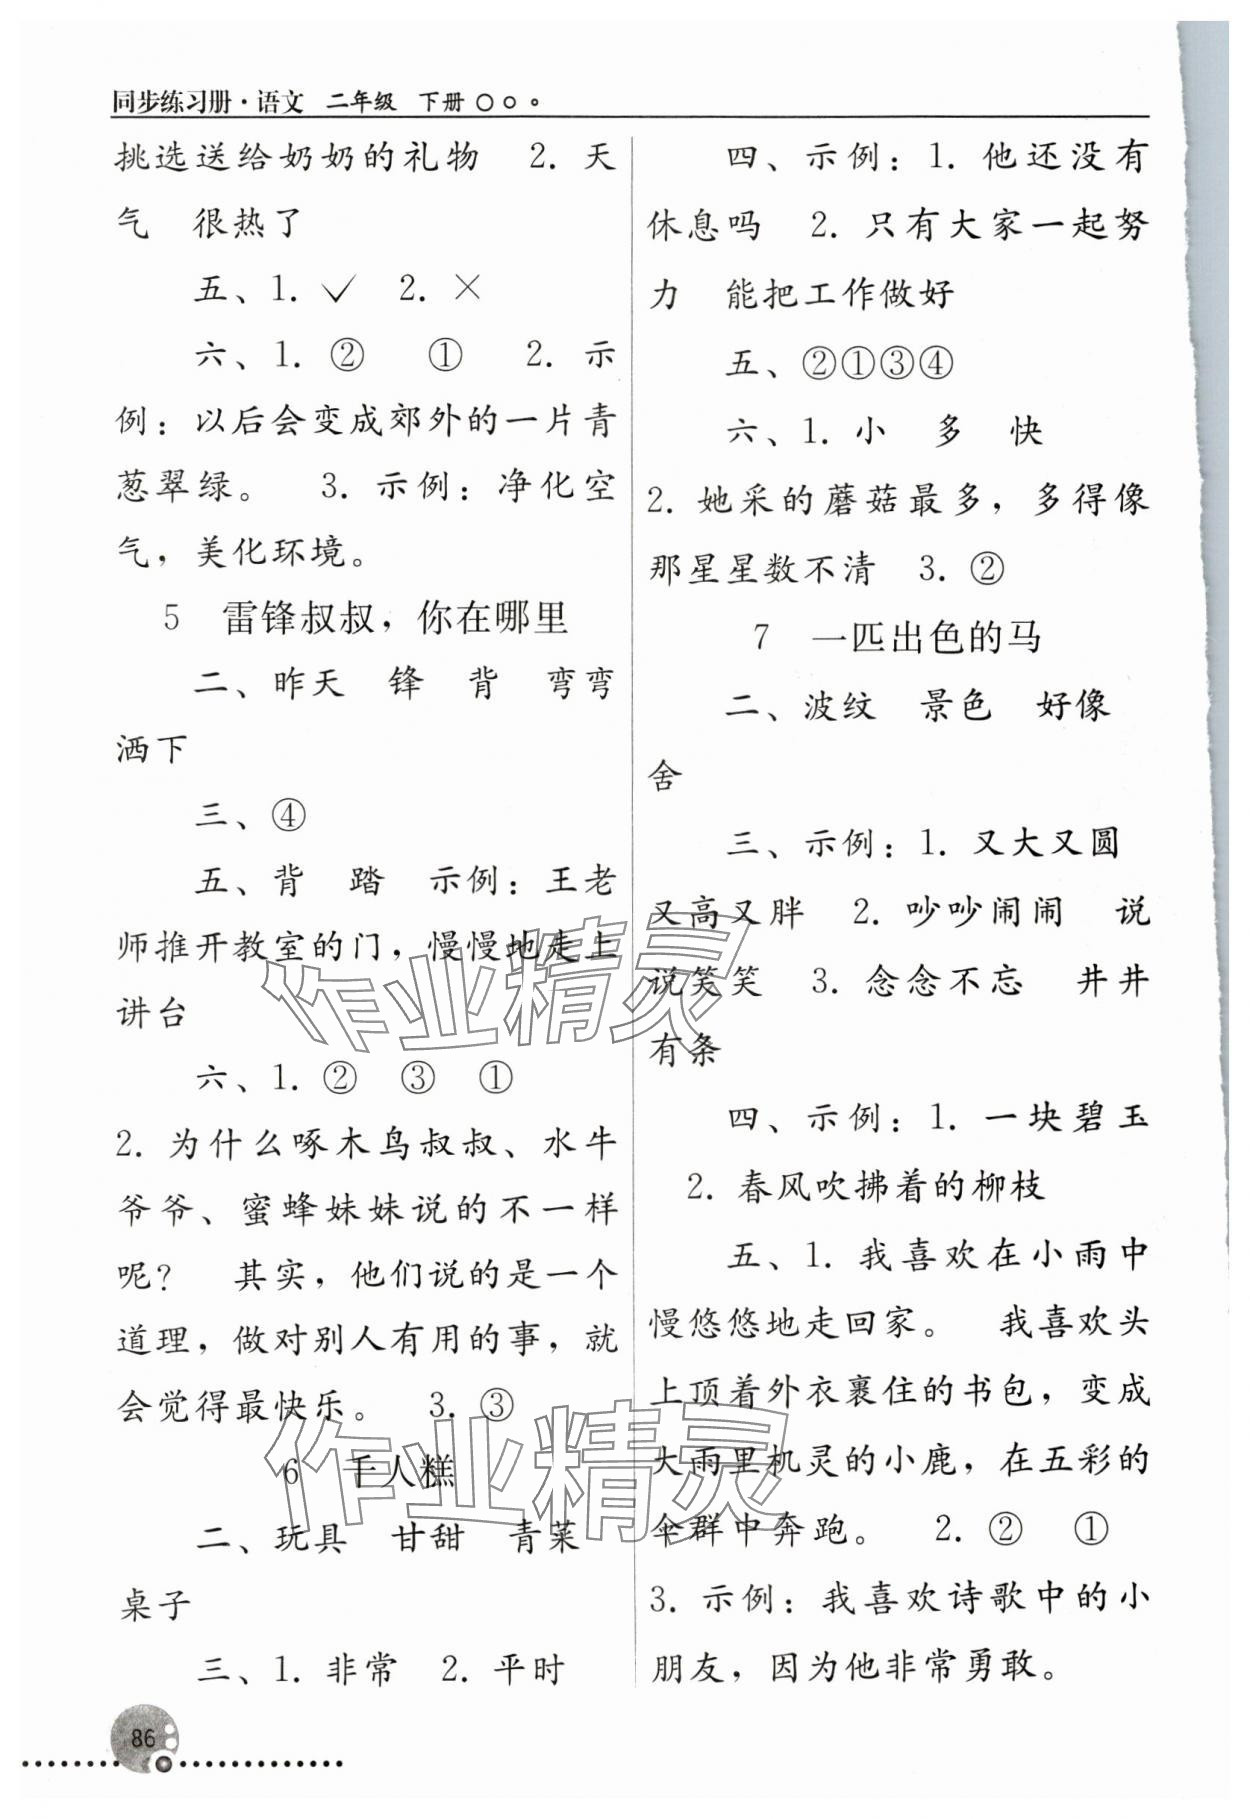 同步练习册·语文 二年级 下册
挑选送给奶奶的礼物 2. 天
气 很热了
五、1. ✓ 2. ×
六、1. ② ① 2. 示
例：以后会变成郊外的一片青
葱翠绿。 3. 示例：净化空
气，美化环境。
5 雷锋叔叔，你在哪里
二、昨天 锋 背 弯弯
洒下
三、④
五、背 踏 示例：王老
师推开教室的门，慢慢地走上
讲台
六、1. ② ③ ①
2. 为什么啄木鸟叔叔、水牛
爷爷、蜜蜂妹妹说的不一样
呢？ 其实，他们说的是一个
道理，做对别人有用的事，就
会觉得最快乐。 3. ③
6 千人糕
二、玩具 甘甜 青菜
桌子
三、1. 非常 2. 平时
四、示例：1. 他还没有
休息吗 2. 只有大家一起努
力 能把工作做好
五、②①③④
六、1. 小 多 快
2. 她采的蘑菇最多，多得像
那星星数不清 3. ②
7 一匹出色的马
二、波纹 景色 好像
舍
三、示例：1. 又大又圆
又高又胖 2. 吵吵闹闹 说
说笑笑 3. 念念不忘 井井
有条
四、示例：1. 一块碧玉
2. 春风吹拂着的柳枝
五、1. 我喜欢在小雨中
慢悠悠地走回家。 我喜欢头
上顶着外衣裹住的书包，变成
大雨里机灵的小鹿，在五彩的
伞群中奔跑。 2. ② ①
3. 示例：我喜欢诗歌中的小
朋友，因为他非常勇敢。
86
作业精灵
作业精灵